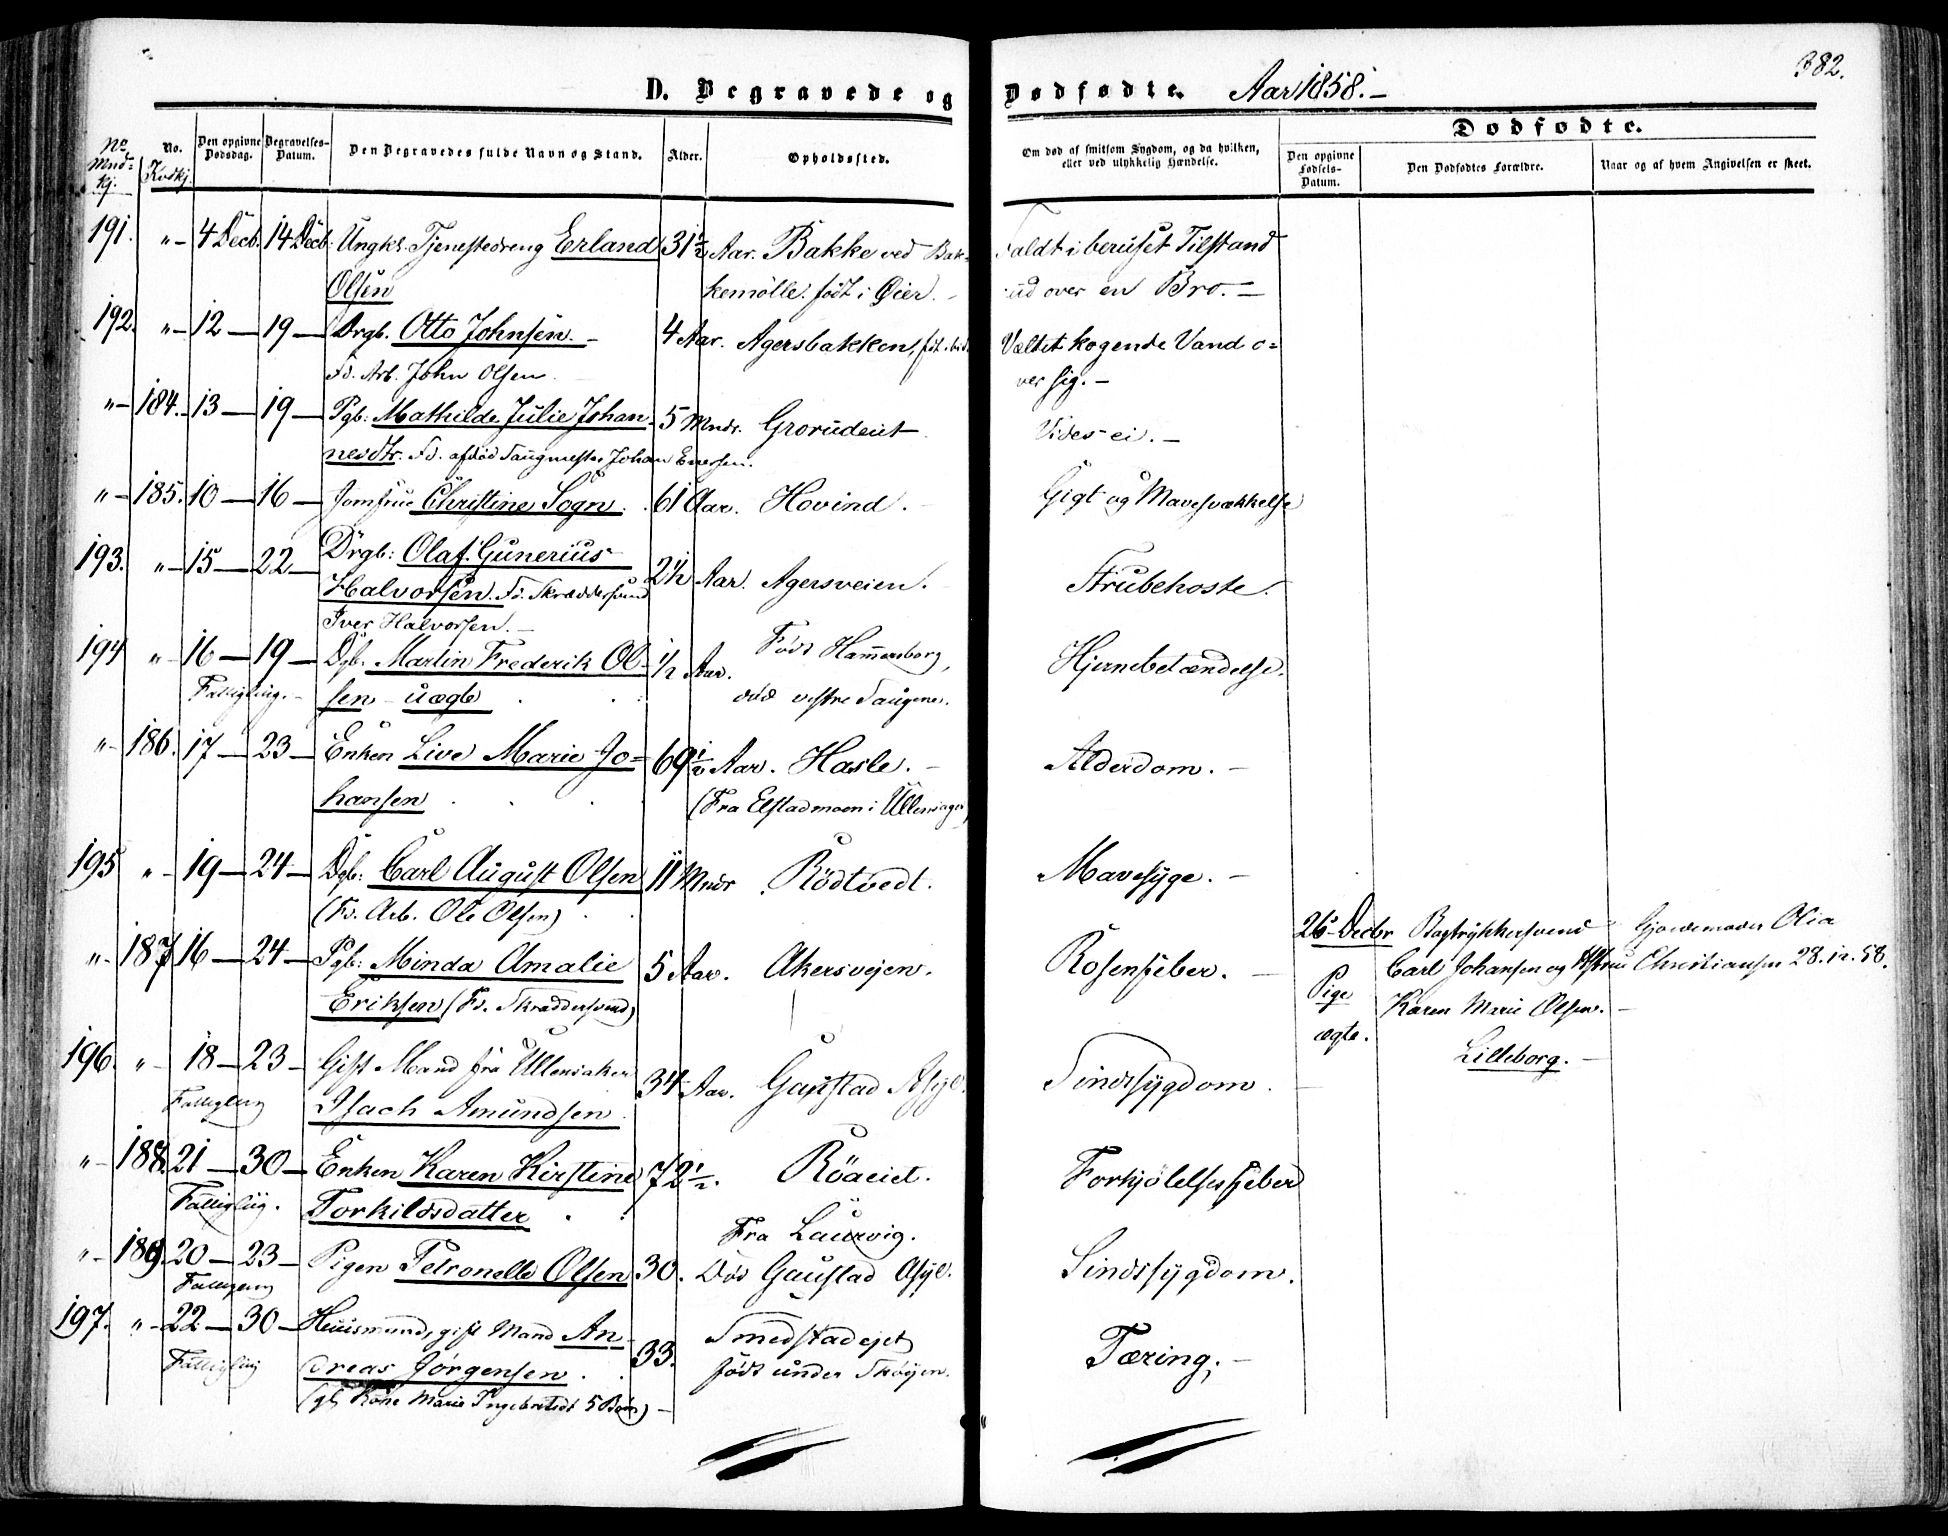 382.
D. Begravede og Dødfødte. Aar 1858.-
Dødfødte.
No Mndkj.
No. Kvdkj.
Den opgivne Dødsdag.
Begravelses-Datum.
Den Begravedes fulde Navn og Stand.
Alder.
Opholdssted.
Om død af smitsom Sygdom, og da hvilken, eller ved ulykkelig Hændelse.
Den opgivne Fødsels-Datum.
Den Dødfødtes Forældre.
Naar og af hvem Angivelsen er skeet.
191. "- 4 Decb. 14 Decb: Ungk. Tjenestedreng Erland 31 1/2 Aar. Bakke ved Bak- Faldt i beruset Tilstand
Olsen kemølle. født i Øier.- ud over en Bro.-
192. "- 12- 19- Drgb. Otto Johnsen.- 4 Aar. Agersbakken, Væltet kogende Vand o=
Fd. Arb. John Olsen. ver sig.-
"- 184. 13- 19- Pgb: Mathilde Julie Johan- 5 Mndr. Grorudeiet Vides ei.-
nesdtr. Fd. afdød Johan Enersen.
"- 185. 10- 16- Jomfrue Christine Sogn. 61 Aar. Hovind. Gigt og Mavesvækkelse
193. "- 15- 22- Drgb: Olaf Gunerius 2 1/2 Aar. Agersveien. Strubehoste.
Halvorsen. Fd. Skræddersvend
Iver Halvorsen.-
194 "- 16- 19- Dgb. Martin Frederik Ol- 1/2 Aar. Født Hammersborg, Hjernebetændelse.
Fattiglig.- sen - uægte død vestre Taugene.
"- 186. 17- 23- Enken Live Marie Jo= 69 1/2 Aar. Hasle.- Alderdom.-
hansen (Fra Elstadmoen i Ullensager)
195 "- 19- 24- Dgb: Carl August Olsen 11 Mndr Rödtvedt. Mavesyge.-
(Fd. Arb. Ole Olsen)
26 Decbr Bogtrykkersvend Gjordemoder Olia
"- 187 16- 24- Pgb: Minda Amalie 5 Aar. Akersvejen. Rosenfeber.- Carl Johansen og Hstru Christiansen 28.12.58.
Eriksen (Fd. Skræddersvend) Pige Karen Marie Olsen.-
ægte. Lilleborg.-
196. "- 18- 23- Gift Mand fra Ullensaker 34 Aar. Gaustad Asyl. Sindssygdom.
Fattiglig Isach Amundsen
"- 188. 21- 30- Enken Karen Kirstine 72 1/2. Röaeiet. Forkjölelsesfeber
Fattiglig. Torkildsdatter
Fra Laurvig.
"- 189. 20- 23- Pigen Petronelle Olsen 30. Död Gaustad Asyl. Sindssygdom.
Fattiglig
197. "- 22- 30- Huusmand, gift Mand An- 33. Smedstadejet Tæring.-
Fattiglig dreas Jörgensen født under Skøyen.
(gl Kone Marie Ingebretsdt 5 Börn)-